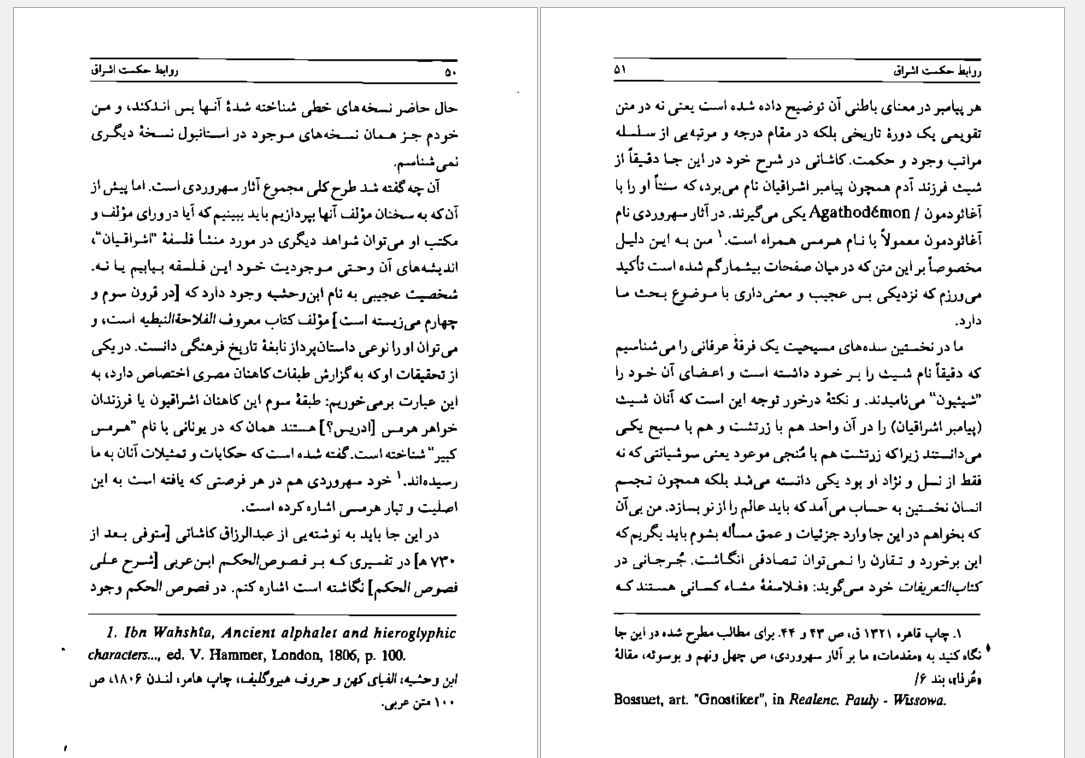 ۵۰ روابط حکمت اشراق
حال حاضر نسخه‌های خطی شناخته شدهٔ آنها بس اندکند، و من
خودم جز همان نسخه‌های موجود در استانبول نسخهٔ دیگری
نمی‌شناسم.
آن چه گفته شد طرح کلی مجموع آثار سهروردی است. اما پیش از
آن‌که به سخنان مؤلف آنها بپردازیم باید ببینیم که آیا در ورای مؤلف و
مکتب او می‌توان شواهد دیگری در مورد منشأ فلسفهٔ "اشراقیان"،
اندیشه‌های آن وحتی موجودیت خود این فلسفه بیابیم یا نه.
شخصیت عجیبی به نام ابن‌وحشیه وجود دارد که [در قرون سوم و
چهارم می‌زیسته است] مؤلف کتاب معروف الفلاحةالنبطیه است، و
می‌توان او را نوعی داستان‌پرداز نابغهٔ تاریخ فرهنگی دانست. در یکی
از تحقیقات او که به گزارش طبقات کاهنان مصری اختصاص دارد، به
این عبارت برمی‌خوریم: طبقهٔ سوم این کاهنان اشراقیون یا فرزندان
خواهر هرمس [ادریس؟] هستند همان که در یونانی با نام "هرمس
کبیر" شناخته است. گفته شده است که حکایات و تمثیلات آنان به ما
رسیده‌اند.۱ خود سهروردی هم در هر فرصتی که یافته است به این
اصلیت و تبار هرمسی اشاره کرده است.
در این جا باید به نوشته‌یی از عبدالرزاق کاشانی [متوفی بعد از
۷۳۰ ه‍] در تفسیری که بر فصوص‌الحکم ابن‌عربی [شرح علی
فصوص الحکم] نگاشته است اشاره کنم. در فصوص الحکم وجود
1. Ibn Wahshîa, Ancient alphalet and hieroglyphic
characters..., ed. V. Hammer, London, 1806, p. 100.
ابن وحشیه، الفبای کهن و حروف هیروگلیف، چاپ هامر، لندن ۱۸۰۶، ص
۱۰۰ متن عربی.
روابط حکمت اشراق ۵۱
هر پیامبر در معنای باطنی آن توضیح داده شده است یعنی نه در متن
تقویمی یک دورهٔ تاریخی بلکه در مقام درجه و مرتبه‌یی از سلسله
مراتب وجود و حکمت. کاشانی در شرح خود در این جا دقیقاً از
شیث فرزند آدم همچون پیامبر اشراقیان نام می‌برد، که سنتاً او را با
آغاثودمون / Agathodémon یکی می‌گیرند. در آثار سهروردی نام
آغاثودمون معمولاً با نام هرمس همراه است.۱ من به این دلیل
مخصوصاً بر این متن که در میان صفحات بیشمار گم شده است تأکید
می‌ورزم که نزدیکی بس عجیب و معنی‌داری با موضوع بحث ما
دارد.
ما در نخستین سده‌های مسیحیت یک فرقهٔ عرفانی را می‌شناسیم
که دقیقاً نام شیث را بر خود داشته است و اعضای آن خود را
"شیثیون" می‌نامیدند. و نکتهٔ درخور توجه این است که آنان شیث
(پیامبر اشراقیان) را در آن واحد هم با زرتشت و هم با مسیح یکی
می‌دانستند زیراکه زرتشت هم با مُنجی موعود یعنی سوشیانتی که نه
فقط از نسل و نژاد او بود یکی دانسته می‌شد بلکه همچون تجسم
انسان نخستین به حساب می‌آمد که باید عالم را از نو بسازد. من بی‌آن
که بخواهم در این جا وارد جزئیات و عمق مسأله بشوم باید بگویم که
این برخورد و تقارن را نمی‌توان تصادفی انگاشت. جُرجانی در
کتاب‌التعریفات خود می‌گوید: «فلاسفهٔ مشاء کسانی هستند که
۱. چاپ قاهره ۱۳۲۱ ق، ص ۴۳ و ۴۴. برای مطالب مطرح شده در این جا
نگاه کنید به «مقدمات» ما بر آثار سهروردی، ص چهل ونهم و بوسوئه، مقالهٔ
«عُرفا»، بند ۶/
Bossuet, art. "Gnostiker", in Realenc. Pauly - Wissowa.